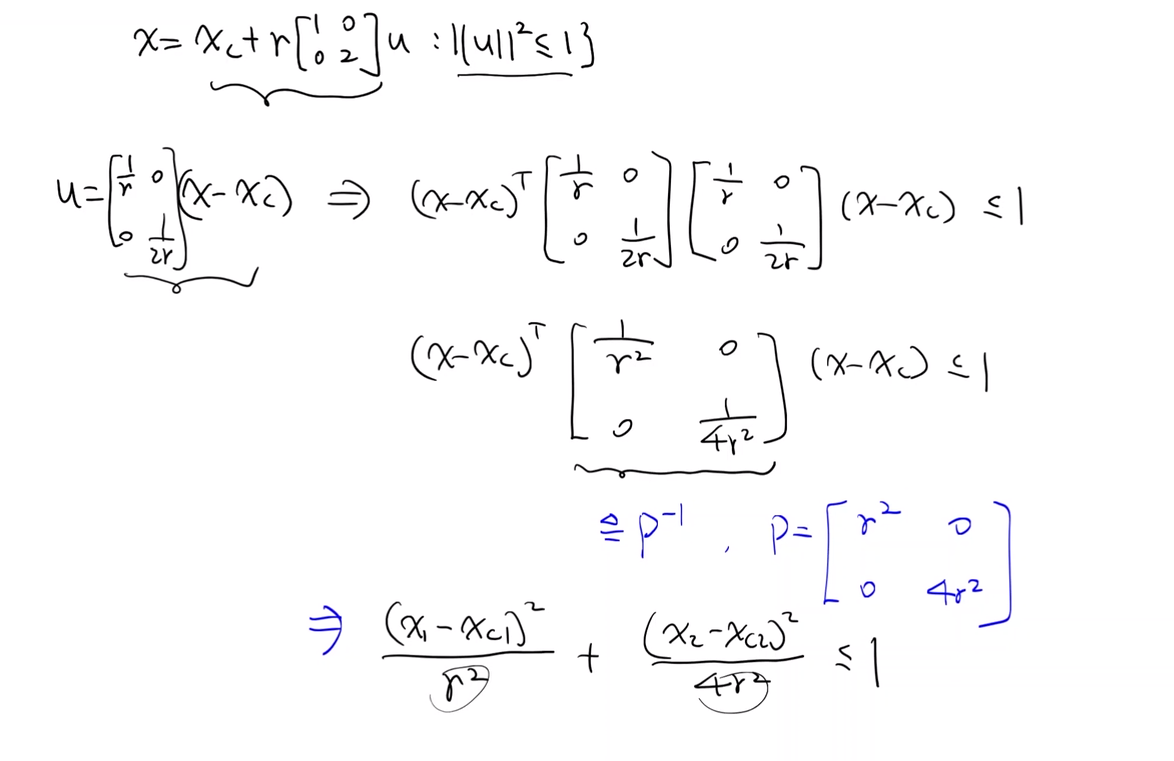 x = x_c + r [1 0; 0 2] u : ||u||² ≤ 1}
u = [1/r 0; 0 1/2r] (x - x_c) ⇒ (x - x_c)^T [1/r 0; 0 1/2r] [1/r 0; 0 1/2r] (x - x_c) ≤ 1
(x - x_c)^T [1/r² 0; 0 1/4r²] (x - x_c) ≤ 1
≜ P⁻¹ , P = [r² 0; 0 4r²]
⇒ (x₁ - x_c1)²/r² + (x₂ - x_c2)²/4r² ≤ 1